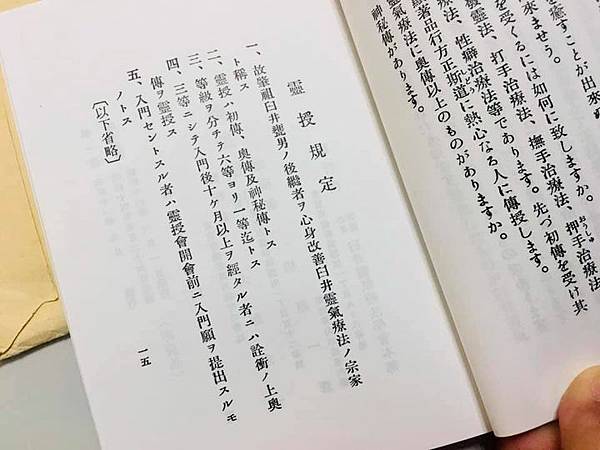 を癒すことが出來
來ませう。
を受くるには如何に致しますか。
發靈法、打手治療法、撫手治療法、押手治療法
おうしゅ
法、性癖治療法等であります。先づ初傳を受け其
著品行方正斯道に熱心なる人に傳授します。
氣療法に奧傳以上のものがありますか。
神秘傳があります。
靈授規定
一、故肇祖臼井甕男ノ後繼者ヲ心身改善臼井靈氣療法ノ宗家
ト稱ス
二、靈授ハ初傳、奧傳及神秘傳トス
三、等級ヲ分チテ六等ヨリ一等迄トス
四、三等ニシテ入門後十ケ月以上ヲ經タル者ニハ詮衡ノ上奧
傳ヲ靈授ス
五、入門セントスル者ハ靈授會開會前ニ入門願ヲ提出スルモ
ノトス
〔以下省略〕
一五